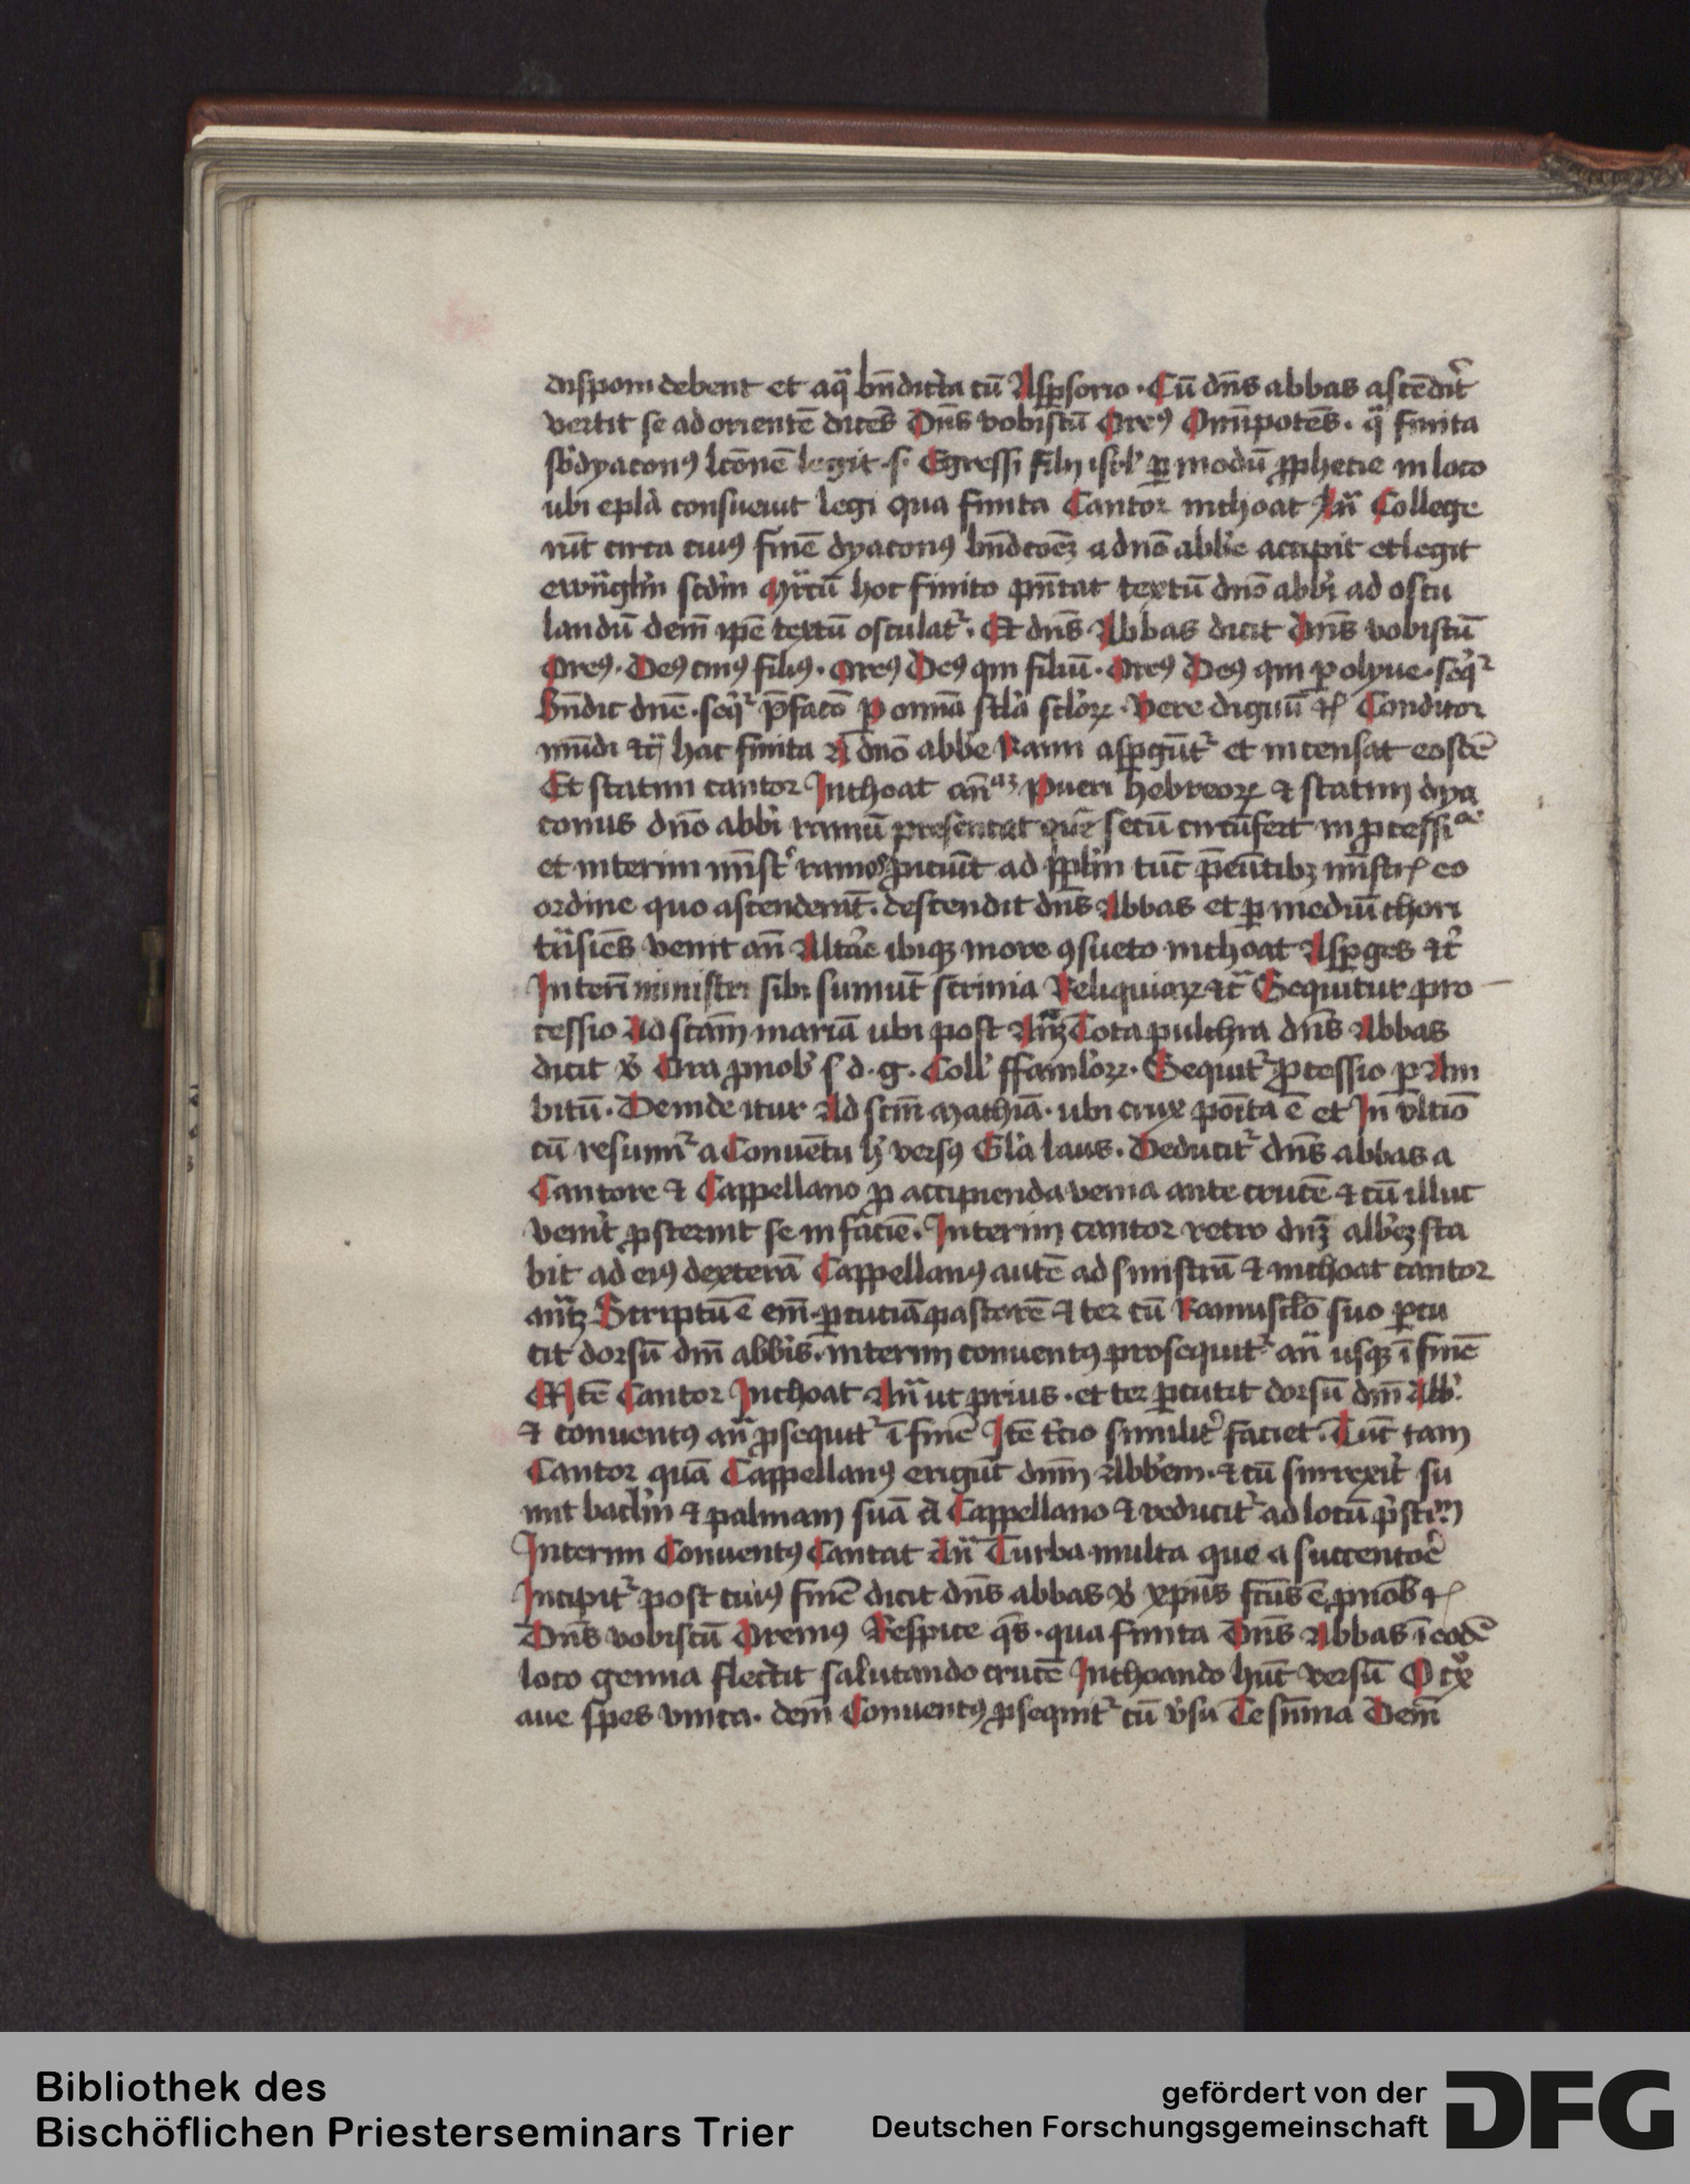 disponi debent et aqᷓ bn̄dicta cū Asꝑsorio · Cū dn̄s abbas ascēdit᷑
vertit se ad orientē dicēs Dn̄s vobiscū Oreꝰ Om̄ipotēs · qᷓ finita
sb̓dyaconꝰ lcōnē legit · s · Egressi filij isrl̓ ꝑ modū ꝓphetie in loco
ubi epl̓a consueuit legi qua finita Cantor inchoat An̄ College
rūt circa cuiꝰ finē dyaconꝰ bn̄dcōeꝫ a dn̄o abb̓e accipit et legit
ewn̄gl̓m scd̓m Mr̄cū hoc finito pn̄tat textū dn̄o abb̓i ad oscu
landū dem̄ ip̄e textū osculat᷑ · Et dn̄s Abbas dicit Dn̄s vobiscū
Oreꝰ · Deꝰ cuiꝰ filiꝰ · Oreꝰ Deꝰ qui filiū · Oreꝰ Deꝰ qui ꝑ olyue · seq᷑
Bn̄dic dn̄e · seq᷑ p̄facō ꝑ omn̄ia scl̓a scl̓oꝝ · Vere dignū ⁊c̄ Conditor
mūdi ⁊cꝫ hac finita A dn̄o abb̓e Rami asꝑgūt᷑ et incensat eosdē
Et statim cantor Inchoat an̄ᵃᵐ Pueri hebreoꝝ ⁊ statim dya
conus dn̄o abb̓i ramū presentat quē secū circūfert in ꝓcessi
et interim min̄st᷑ ramos ꝓiciūt ad ppl̓m tūc p̄eūtibꝫ min̄str̄ eo
ordine quo ascenderūt · descendit dn̄s Abbas et ꝑ mediū chori
trᷓsiēs venit an̄ Altar̄e ibiqꝫ more ꝯsueto inchoat Asꝑges ⁊c̄
Interī ministri sibi sumūt scrinia Reliquiaꝝ ⁊c̄ Sequitur pro
cessio Ad scām mariā ubi post An̄ꝫ Tota pulchra dn̄s Abbas
dicit ℣ Ora ꝓ nob̓ s d · g · Coll̓ ffaml̓oꝝ · Sequit᷑ ꝓcessio ꝑ Am
bitū · Deinde itur Ad scm̄ Mathiā · ubi crux poīta ē et In vltīo
cū resumit᷑ a Conuētu hꝰ versꝰ Gl̓a laus · Deducit᷑ dn̄s abbas a
Cantore ⁊ Cappellano ꝓ accipienda venia ante crucē ⁊ cū illuc
venit᷑ ꝓsternit se in faciē · Interim cantor retro dn̄ꝫ abb̓eꝫ sta
bit ad eiꝰ dexterā Cappellanꝰ autē ad sinistrā ⁊ inchoat cantor
an̄ꝫ Scriptū ē em̄ ꝑcuciā pastorē ⁊ ter cū Ramusclō suo ꝑcu
tit dorsū dn̄i abb̓is · interim conuentꝰ prosequit᷑ an̄ usqꝫ ī finē
Et Itē Cantor Inchoat An̄ ut prius · et ter ꝑcutit dorsū dn̄i Abb̓
⁊ conuentꝰ an̄ ꝓsequit᷑ ī finē Itē t̓cio similit᷑ faciet · Tūc tam
Cantor quā Cappellanꝰ erigūt dn̄m Abb̓em · ⁊ cū surrexit᷑ su
mit bacl̓m ⁊ palmam suā A Cappellano ⁊ reducit᷑ ad locū p̓stīᵐ
Interim Conuentꝰ Cantat An̄ Turba multa que a succentor̄e
Incipit᷑ post cuiꝰ finē dicit dn̄s abbas ℣ xp̄us fcūs ē ꝓ nob̓ ⁊c̄
Dn̄s vobiscū Oremꝰ Respice qs̄ · qua finita Dn̄s Abbas ī eodē
loco genua flectit salutando crucē Inchoando hūc versū O cͦx
aue spes vnica · dem̄ Conuentꝰ ꝓsequit᷑ cū v̓su Te sum̄a Dem̄
Bibliothek des
Bischöflichen Priesterseminars Trier
gefördert von der
Deutschen Forschungsgemeinschaft
DFG